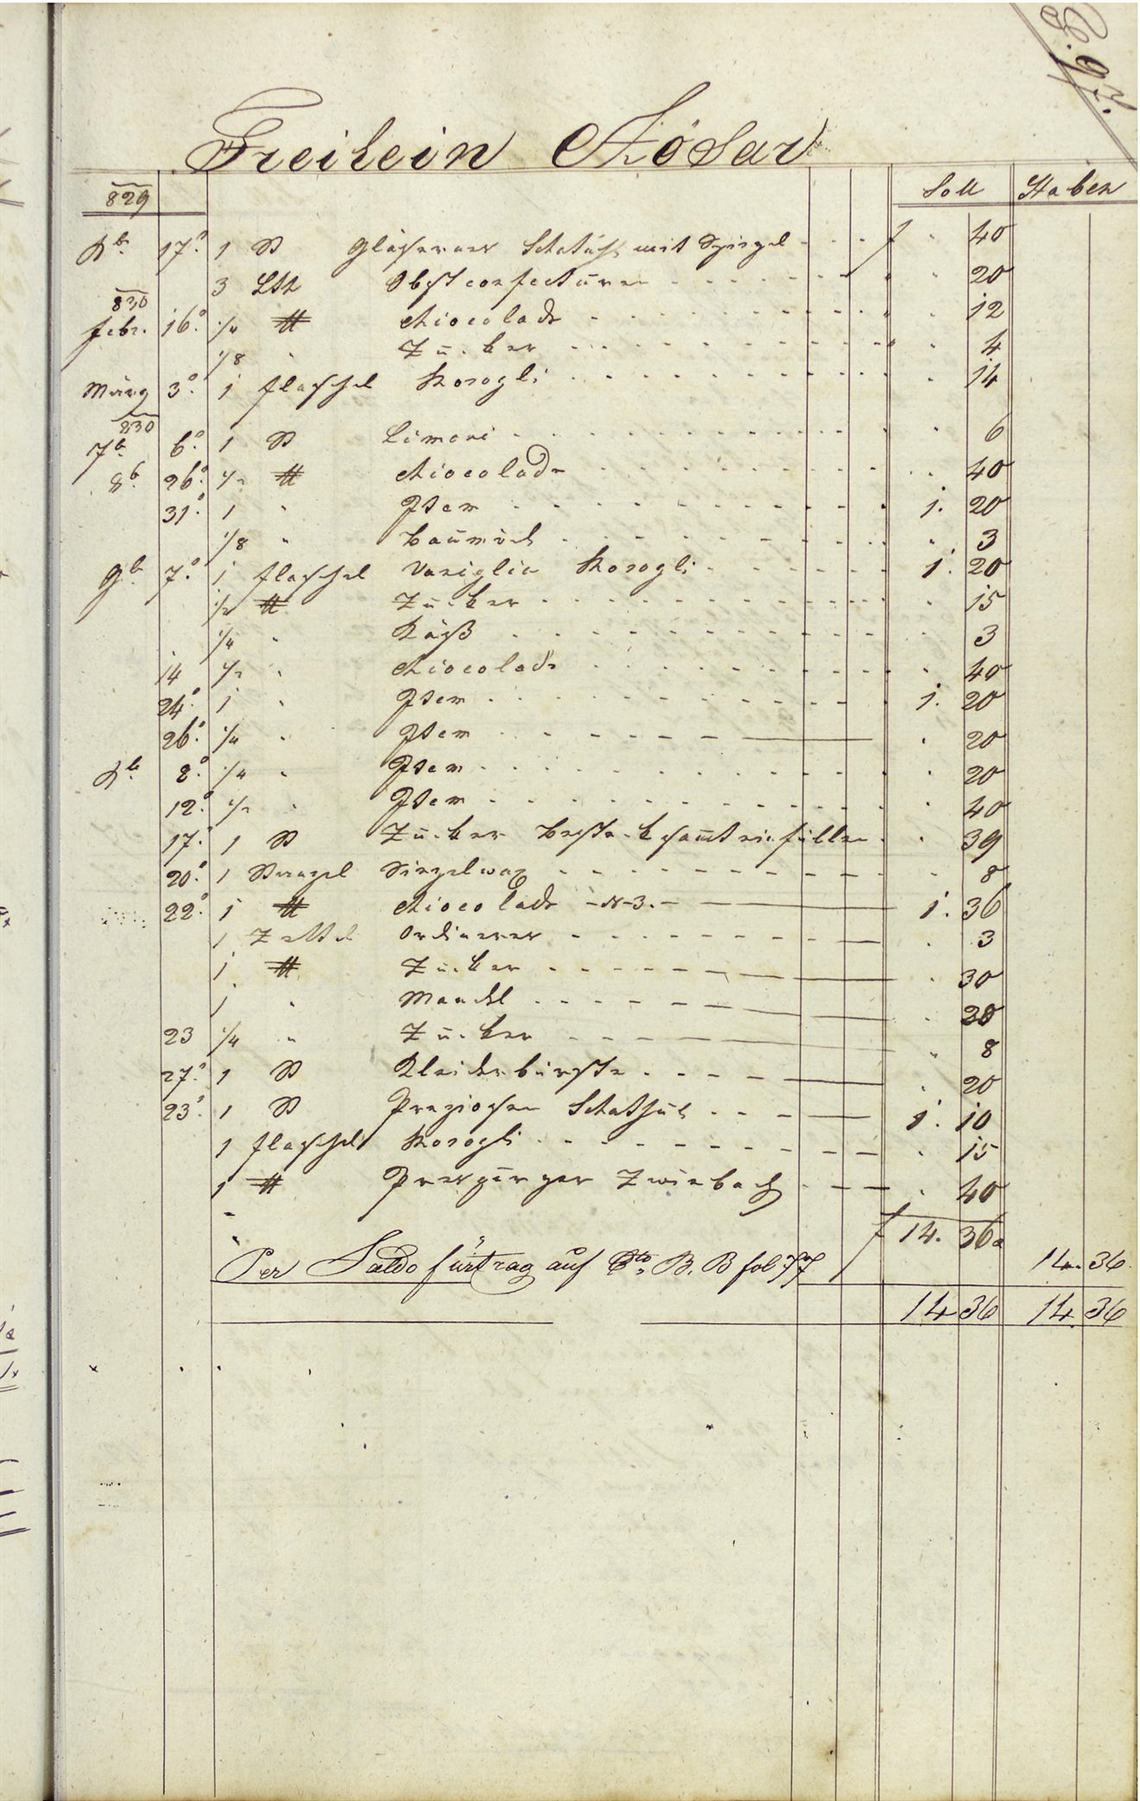 Freilein Kösar
829 Soll Haben
Xb. 17. 1 St Gläserner Schatul mit Spiegel f 40
3 Lth Obst confecturen 20
830
Febr. 16. 1/4 ℔ Chiocolade 12
1/8 " Zucker 4
März 3. 1 flaschel Rosogli 14
830
7b. 6. 1 St Limoni 6
8b. 26. 1/2 ℔ Chiocolade 40
31. 1 " Item 1. 20
1/8 " Baumöl 3
9b. 7. 1 flaschel Vaniglia Rosogli 1. 20
1/2 ℔ Zucker 15
1/4 " Käß 3
14 1/2 " Chiocolade 40
24. 1 " Item 1. 20
26. 1/4 " Item 20
Xb. 8. 1/4 " Item 20
12. 1/2 " Item 40
17. 1 St Zucker 39
20. 1 Stangel Siegelwax 8
22. 1 ℔ Chiocolade N 3. 1. 36
1 Zeltel Ordinerer 3
1 ℔ Zucker 30
1 " Mandel
23 1/4 " Zucker 8
27. 1 St Kleiderbürste 20
23. 1 St Preziosen Schatul 1. 10
1 flaschel Rosogli 15
1 ℔ Zwiebach 40
f 14. 36
Per Saldo fürtrag auf B. B fol 77 14. 36
14 36 14. 36